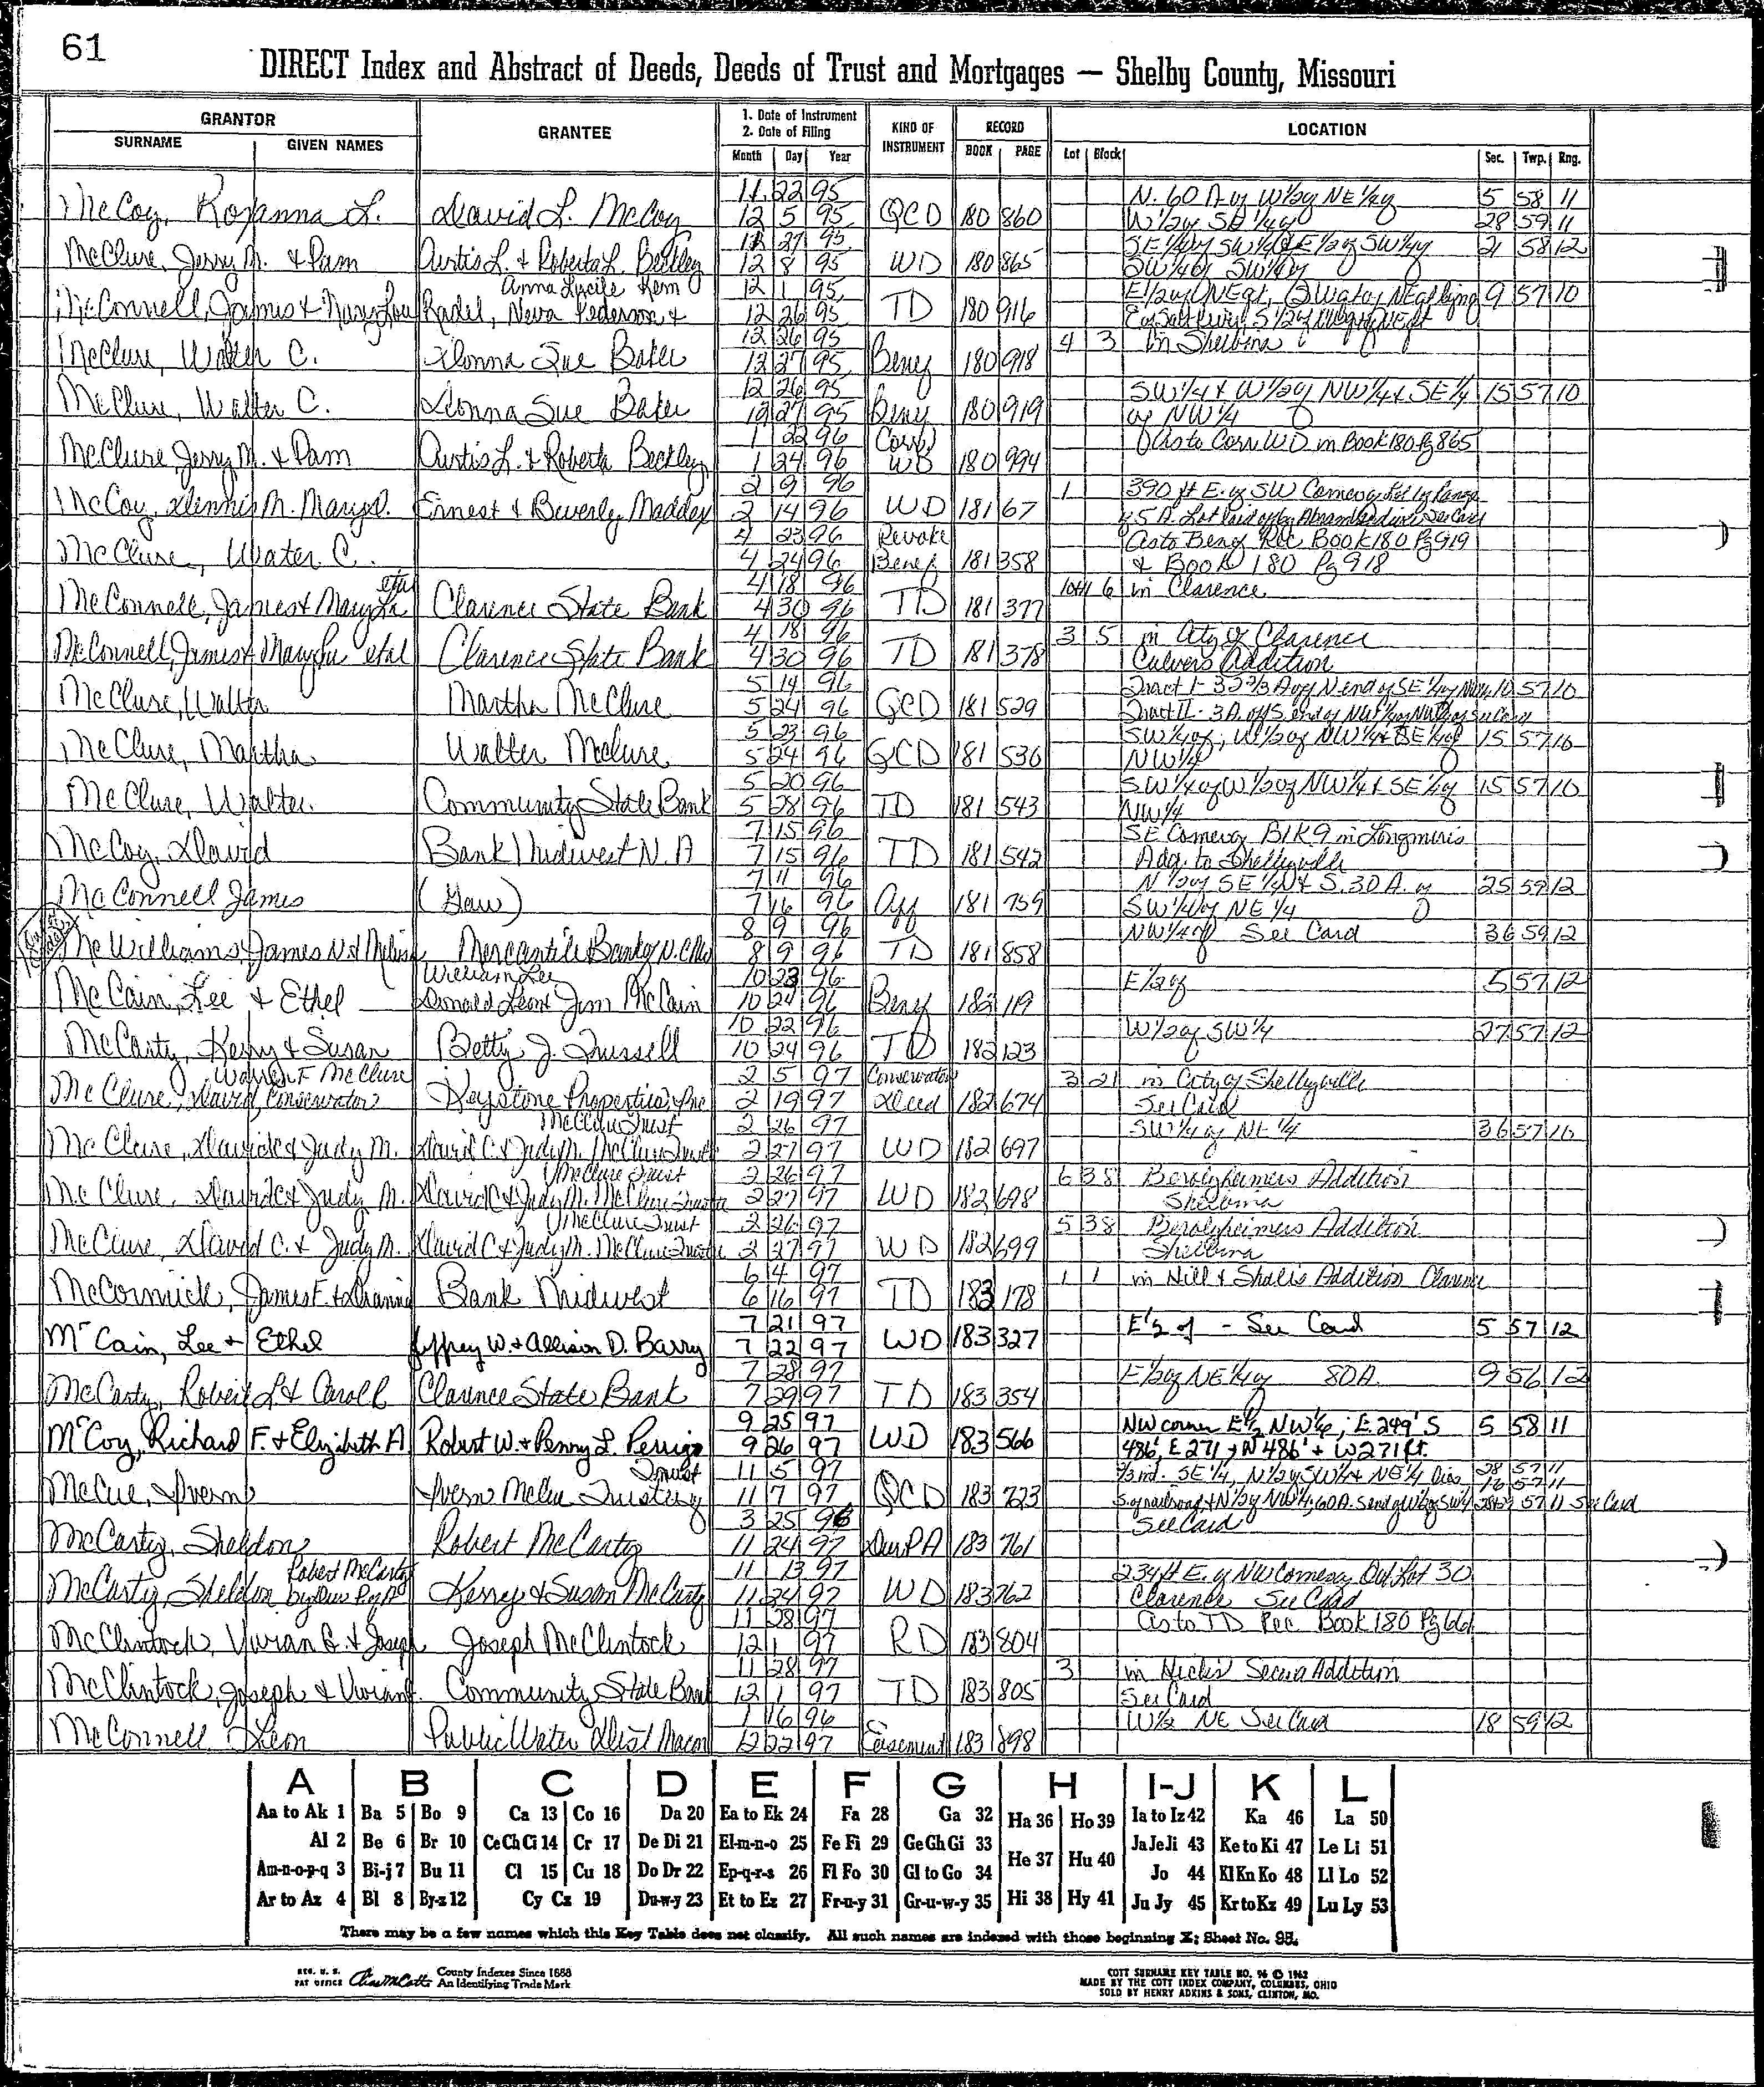 61
DIRECT Index and Abstract of Deeds, Deeds of Trust and Mortgages — Shelby County, Missouri
GRANTOR
SURNAME GIVEN NAMES
GRANTEE
1. Date of Instrument
2. Date of Filing
Month Day Year
KIND OF INSTRUMENT
RECORD
BOOK PAGE
LOCATION
Lot Block Sec. Twp. Rng.
11 22 95 N. 60 A of W 1/2 of NE 1/4 of 5 58 11
McCoy, Roxanna L. David L. McCoy 12 5 95 QCD 180 860 W 1/2 of SE 1/4 of 28 59 11
27 95 SE 1/4 of SW 1/4 E 1/2 of SW 1/4 of 21 58 12
McClure, Jerry M. & Pam Curtis L. & Roberta L. Beckley 12 8 95 WD 180 865 SW 1/4 of SW 1/4 of
Anna Lucile Kem 12 1 95 9 57 10
McConnell, James & Mary Lou Radel, Neva Pederson & 12 26 95 TD 180 916
12 26 95 4 3 in Shelbina
McClure, Walter C. Donna Sue Baker 12 27 95 Benef 180 918
12 26 95 SW 1/4 & W 1/2 of NW 1/4 & SE 1/4 15 57 10
McClure, Walter C. Donna Sue Baker 12 27 95 Benef 180 919 of NW 1/4
1 22 96 Corr as to Corr WD in Book 180 Pg 865
McClure Jerry M. & Pam Curtis L. & Roberta Beckley 1 24 96 WD 180 994
2 9 96 1 390 ft E. of SW Corner of
McCoy, Dennis M. Mary D. Ernest & Beverly Maddox 2 14 96 WD 181 67
4 23 96 Revoke as to Benef Rec Book 180 Pg 919
McClure, Water C. 4 24 96 Benef 181 358 & Book 180 Pg 918
etal 4 18 96 6 in Clarence
McConnell, James & Mary Lu Clarence State Bank 4 30 96 TD 181 377
4 18 96 3 5 in City of Clarence
McConnell, James & Mary Lu etal Clarence State Bank 4 30 96 TD 181 378 Culvers Addition
5 14 96 Tract I - 32 2/3 A of N end of SE 1/4 of 10 57 10
McClure, Walter Martha McClure 5 24 96 QCD 181 529 Tract II - 3 A. of S. end of NW 1/4 of
5 23 96 SW 1/4 of; W 1/2 of NW 1/4 & SE 1/4 of 15 57 10
McClure, Martha Walter McClure 5 24 96 QCD 181 536 NW 1/4
5 20 96 SW 1/4 of W 1/2 of NW 1/4 & SE 1/4 of 15 57 10
McClure, Walter Community State Bank 5 28 96 TD 181 543 NW 1/4
7 15 96 SE Corner of Blk 9 in Longmires
McCoy, David Bank Midwest N.A 7 15 96 TD 181 542 Add. to Shelbyville
7 11 96 N 1/2 of SE 1/4 & S. 30 A. of 25 59 12
McConnell James 7 16 96 Aff 181 759 SW 1/4 of NE 1/4
8 9 96 NW 1/4 of See Card 36 59 12
McWilliams, James N & Mercantile Bank of N. C. Mo 8 9 96 TD 181 858
William Lee 10 23 96 E 1/2 of 5 57 12
McCain, Lee & Ethel Donald Leon & Jim McCain 10 24 96 Benef 182 119
10 22 96 W 1/2 of SW 1/4 27 57 12
McCarty, Kerry & Susan Betty J. Trussell 10 24 96 TD 182 123
McClure 2 5 97 Conservator 3 21 in City of Shelbyville
McClure, David Conservator Keystone Properties Inc 2 19 97 Deed 182 674 See Card
McClure Trust 2 26 97 SW 1/4 of NE 1/4 36 57 10
McClure, David C & Judy M. David C. & Judy M. McClure Trustee 2 27 97 WD 182 697
McClure Trust 2 26 97 6 38 Berolzheimers Addition
McClure, David C & Judy M. David C & Judy M. McClure Trustee 2 27 97 WD 182 698 Shelbina
McClure Trust 2 26 97 5 38 Berolzheimers Addition
McClure, David C. & Judy M. David C & Judy M. McClure Trustee 2 27 97 WD 182 699 Shelbina
6 4 97 1 1 in Hill & Shalis Addition Clarence
McCormick, James E. & Bank Midwest 6 16 97 TD 183 178
7 21 97 E 1/2 of - See Card 5 57 12
McCain, Lee & Ethel Jeffrey W. & Allison D. Barry 7 22 97 WD 183 327
7 28 97 E 1/2 of NE 1/4 of 80 A. 9 56 12
McCarty, Robert L & Carol B Clarence State Bank 7 29 97 TD 183 354
9 25 97 NW corner E 1/2 NW 1/4; E 249' S 5 58 11
McCoy, Richard F. & Elizabeth A Robert W. & Penny L. Perrigo 9 26 97 WD 183 566 486', E 271, N 486' & W 271 ft.
Trust 11 5 97 SE 1/4, N 1/2 of SW 1/4 & NE 1/4 28 57 11
McCue, Ivern Ivern McCue Trustee 11 7 97 QCD 183 723 S of railroad & N 1/2 of NW 1/4, 60 A. S end of W 1/2 of SW 1/4 57 11 See Card
3 25 96 See Card
McCarty, Sheldon Robert McCarty 11 24 97 Dur PA 183 761
Robert McCarty 11 13 97 234 ft E. of NW Corner of Out Lot 30
McCarty, Sheldon by Dur P of A Kerry & Susan McCarty 11 24 97 WD 183 762 Clarence See Card
11 28 97 as to TD Rec Book 180 Pg 661
McClintock, Vivian G. & Joseph Joseph McClintock 12 1 97 RD 183 804
11 28 97 3 in Hicks Second Addition
McClintock, Joseph & Vivian Community State Bank 12 1 97 TD 183 805 See Card
1 16 96 W 1/2 NE See Card 18 59 12
McConnell Leon Public Water Dist Macon 12 22 97 Easement 183 898
A B C D E F G H I-J K L
Aa to Ak 1 Ba 5 Bo 9 Ca 13 Co 16 Da 20 Ea to Ek 24 Fa 28 Ga 32 Ha 36 Ho 39 Ia to Iz 42 Ka 46 La 50
Al 2 Be 6 Br 10 Ce Ch Ci 14 Cr 17 De Di 21 El-m-n-o 25 Fe Fi 29 Ge Gh Gi 33 He 37 Hu 40 Ja Je Ji 43 Ke to Ki 47 Le Li 51
Am-n-o-p-q 3 Bi-j 7 Bu 11 Cl 15 Cu 18 Do Dr 22 Ep-q-r-s 26 Fl Fo 30 Gl to Go 34 Jo 44 Kl Kn Ko 48 Ll Lo 52
Ar to Az 4 Bl 8 By-z 12 Cy Cz 19 Du-w-y 23 Et to Ez 27 Fr-u-y 31 Gr-u-w-y 35 Hi 38 Hy 41 Ju Jy 45 Kr to Kz 49 Lu Ly 53
There may be a few names which this Key Table does not classify. All such names are indexed with those beginning X; Sheet No. 95.
REG. U. S. PAT OFFICE County Indexes Since 1888 An Identifying Trade Mark
COTT SURNAME KEY TABLE NO. 96 © 1962
MADE BY THE COTT INDEX COMPANY, COLUMBUS, OHIO
SOLD BY HENRY ADKINS & SONS, CLINTON, MO.